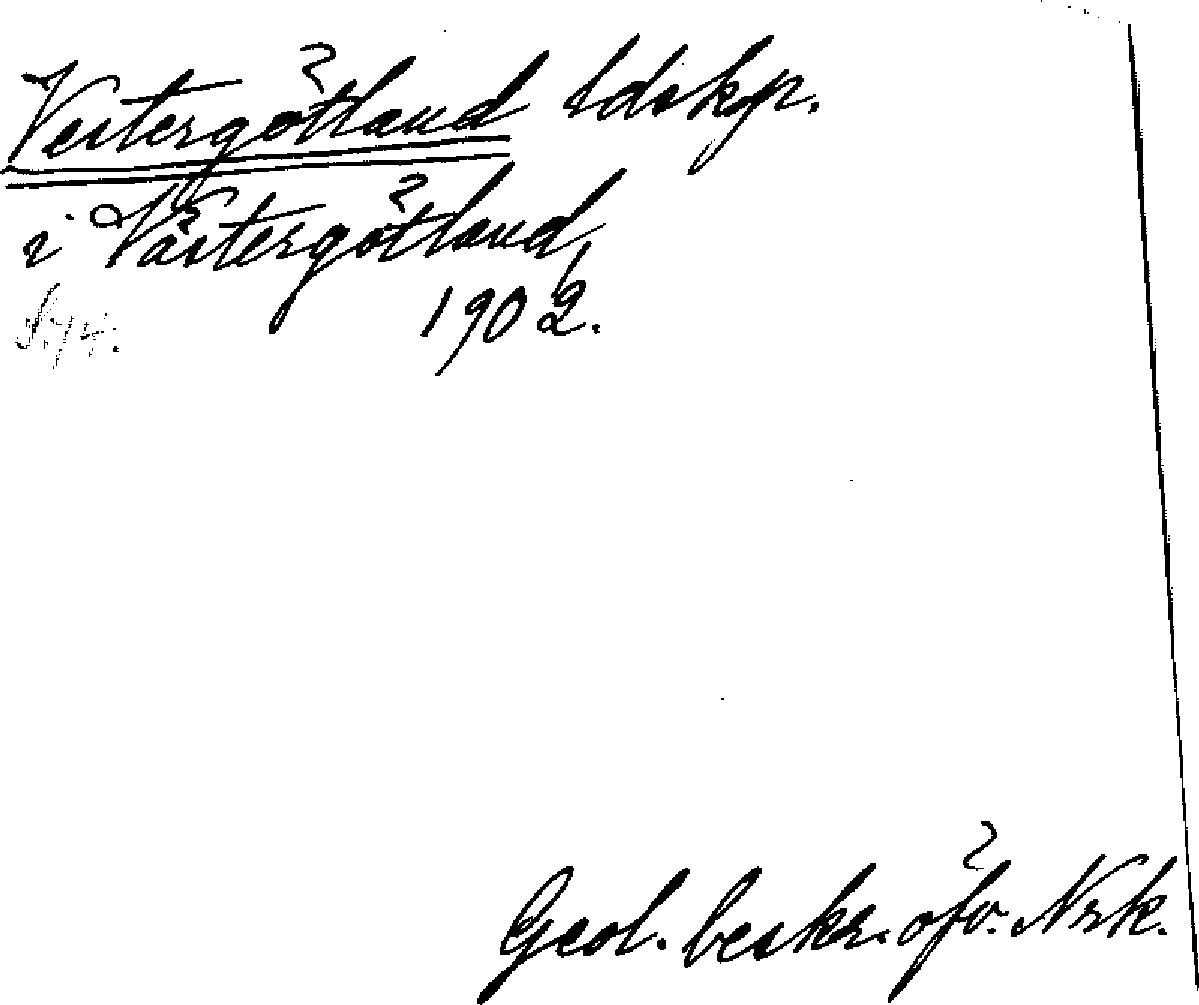 Vestergötland ldskp.
i Västergötland
1902.
Geol. beskr. öfv. Nrk.